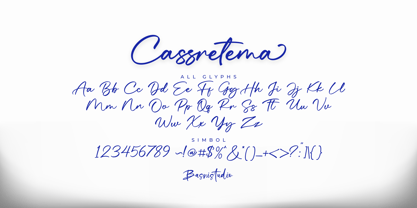 Cassretema
ALL GLYPHS
Aa Bb Cc Dd Ee Ff Gg Hh Ii Jj Kk Ll
Mm Nn Oo Pp Qq Rr Ss Tt Uu Vv
Ww Xx Yy Zz
SIMBOL
123456789 ~!@#$%^&*()_+<>?:"{}
Basnistudio